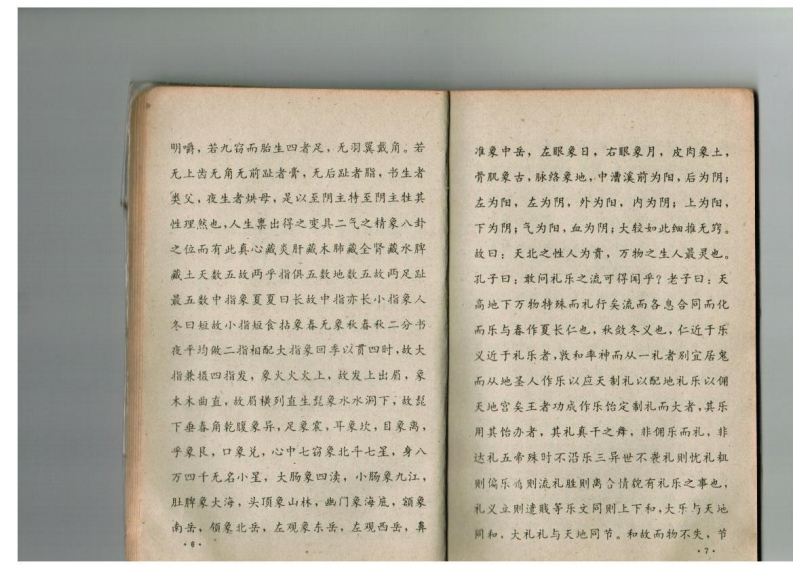 明嚼，若九窃而胎生四者足，无羽翼戴角。若
无上齿无角无前趾者膏，无后趾者脂，书生者
类父，夜生者烘母，是以至阴主特至阴主牡其
性理然也，人生禀出得之变具二气之精象八卦
之位而有此真心藏炎肝藏木肺藏全肾藏水脾
藏土天数五故两乎指俱五数地数五故两足趾
最五数中指象夏夏曰长故中指亦长小指象人
冬曰短故小指短食拈象春无象秋春秋二分书
夜平均做二指相配大指象回季以贯四时，故大
指兼摄四指发，象火火炎上，故发上出眉，象
木木曲直，故眉横列直生髭象水水洞下，故髭
下垂春角乾腹象异，足象震，耳象坎，目象离，
乎象艮，口象兑，心中七窃象北斗七星，身八
万四千无名小星，大肠象四渎，小肠象九江，
肚脾象大海，头顶象山林，幽门象海底，额象
南岳，领象北岳，左观象东岳，左观西岳，鼻
·6·
准象中岳，左眼象日，右眼象月，皮肉象土，
骨肌象古，脉络象地，中漕溪前为阳，后为阴；
左为阳，左为阴，外为阳，内为阴；上为阳，
下为阴；气为阳，血为阴；大较如此细推无穷。
故曰：天北之性人为贵，万物之生人最灵也。
孔子曰：敢问礼乐之流可得闻乎？老子曰：天
高地下万物特殊而礼行矣流而各息合同而化
而乐与春作夏长仁也，秋敛冬义也，仁近于乐
义近于礼乐者，敦和率神而从一礼者别宜居鬼
而从地圣人作乐以应天制礼以配地礼乐以佣
天地宫矣王者功成作乐饴定制礼而大者，其乐
用其饴办者，其礼真干之舞，非佣乐而礼，非
达礼五帝殊时不沿乐三异世不袭礼则忧礼粗
则偏乐鸿则流礼胜则离合情貌有礼乐之事也，
礼义立则逮贱等乐文同则上下和，大乐与天地
同和，大礼礼与天地同节。和故而物不失，节
·7·